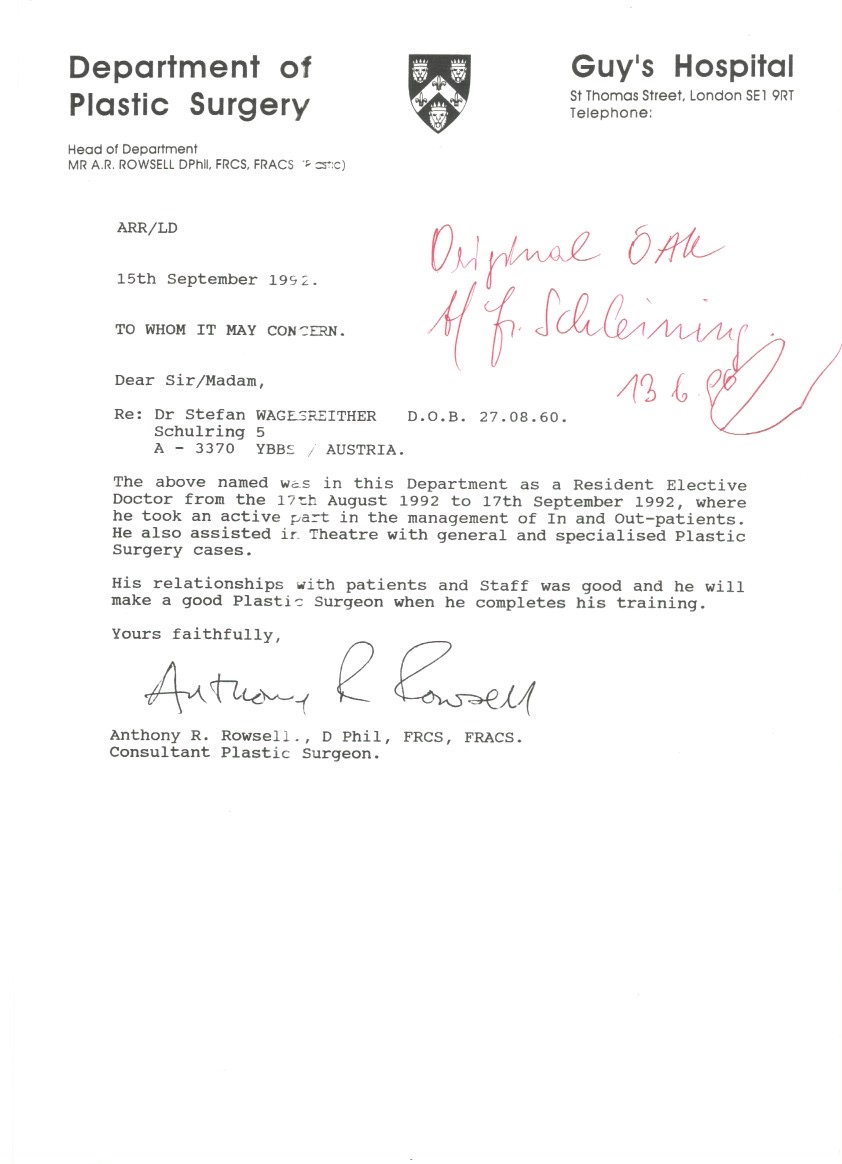 Department of
Plastic Surgery
Guy's Hospital
St Thomas Street, London SE1 9RT
Telephone:
Head of Department
MR A.R. ROWSELL DPhil, FRCS, FRACS (Plastic)
ARR/LD
15th September 1992.
TO WHOM IT MAY CONCERN.
Original ÖÄK
Fr. Schleining
13 6
Dear Sir/Madam,
Re: Dr Stefan WAGESREITHER D.O.B. 27.08.60.
Schulring 5
A - 3370 YBBS / AUSTRIA.
The above named was in this Department as a Resident Elective
Doctor from the 17th August 1992 to 17th September 1992, where
he took an active part in the management of In and Out-patients.
He also assisted in Theatre with general and specialised Plastic
Surgery cases.
His relationships with patients and Staff was good and he will
make a good Plastic Surgeon when he completes his training.
Yours faithfully,
Anthony R Rowsell
Anthony R. Rowsell., D Phil, FRCS, FRACS.
Consultant Plastic Surgeon.